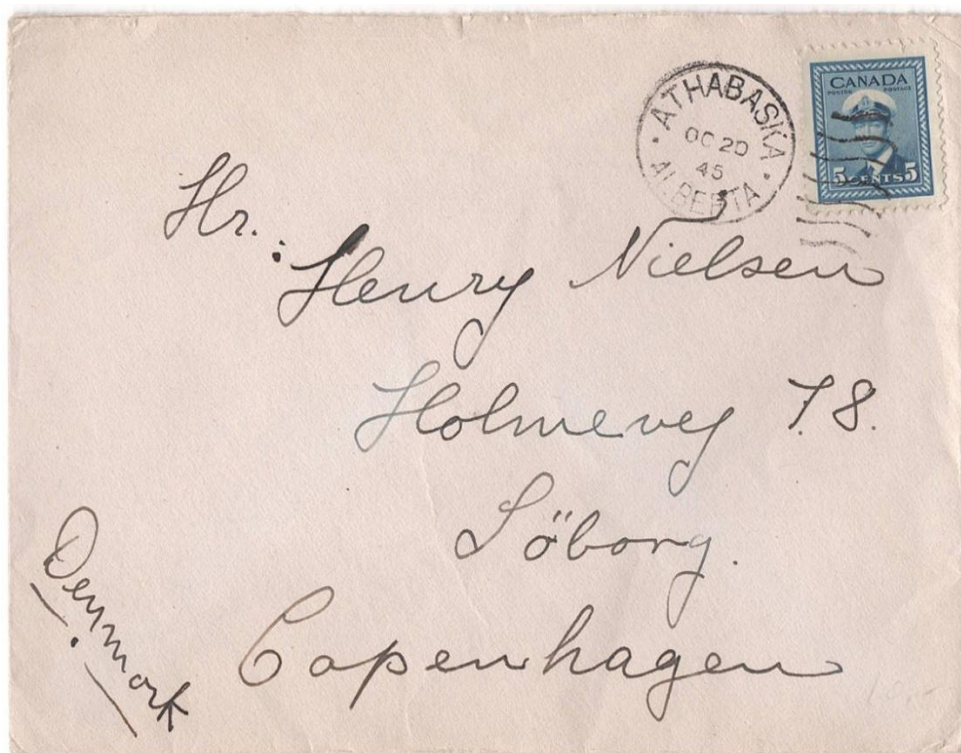 ATHABASKA
OC 20
45
ALBERTA
CANADA
POSTES POSTAGE
5 CENTS 5
Hr.:
Henry Nielsen
Holmevej 78.
Söborg.
Copenhagen
Denmark